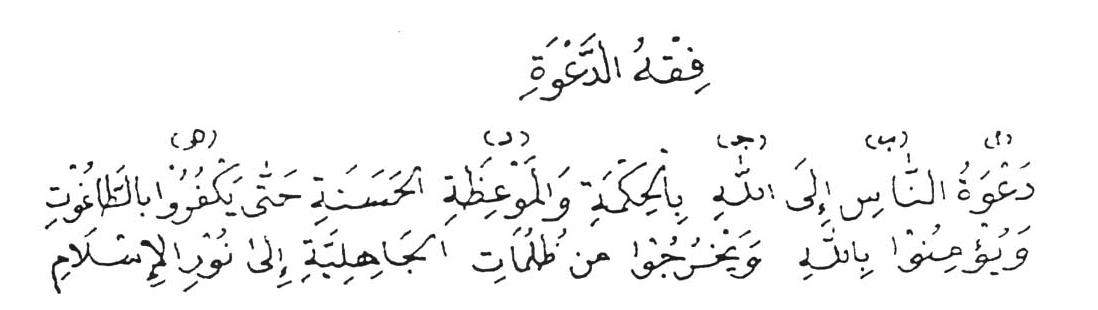 فِقْهُ الدَّعْوَةِ
(أ) (ب) (جـ) (د) (هـ)
دَعْوَةُ النَّاسِ إِلَى اللّٰهِ بِالْحِكْمَةِ وَالْمَوْعِظَةِ الْحَسَنَةِ حَتّٰى يَكْفُرُوْا بِالطَّاغُوْتِ
وَيُؤْمِنُوْا بِاللّٰهِ وَيَخْرُجُوْا مِن ظُلُمَاتِ الْجَاهِلِيَّةِ إِلىٰ نُوْرِ الْإِسْلَامِ